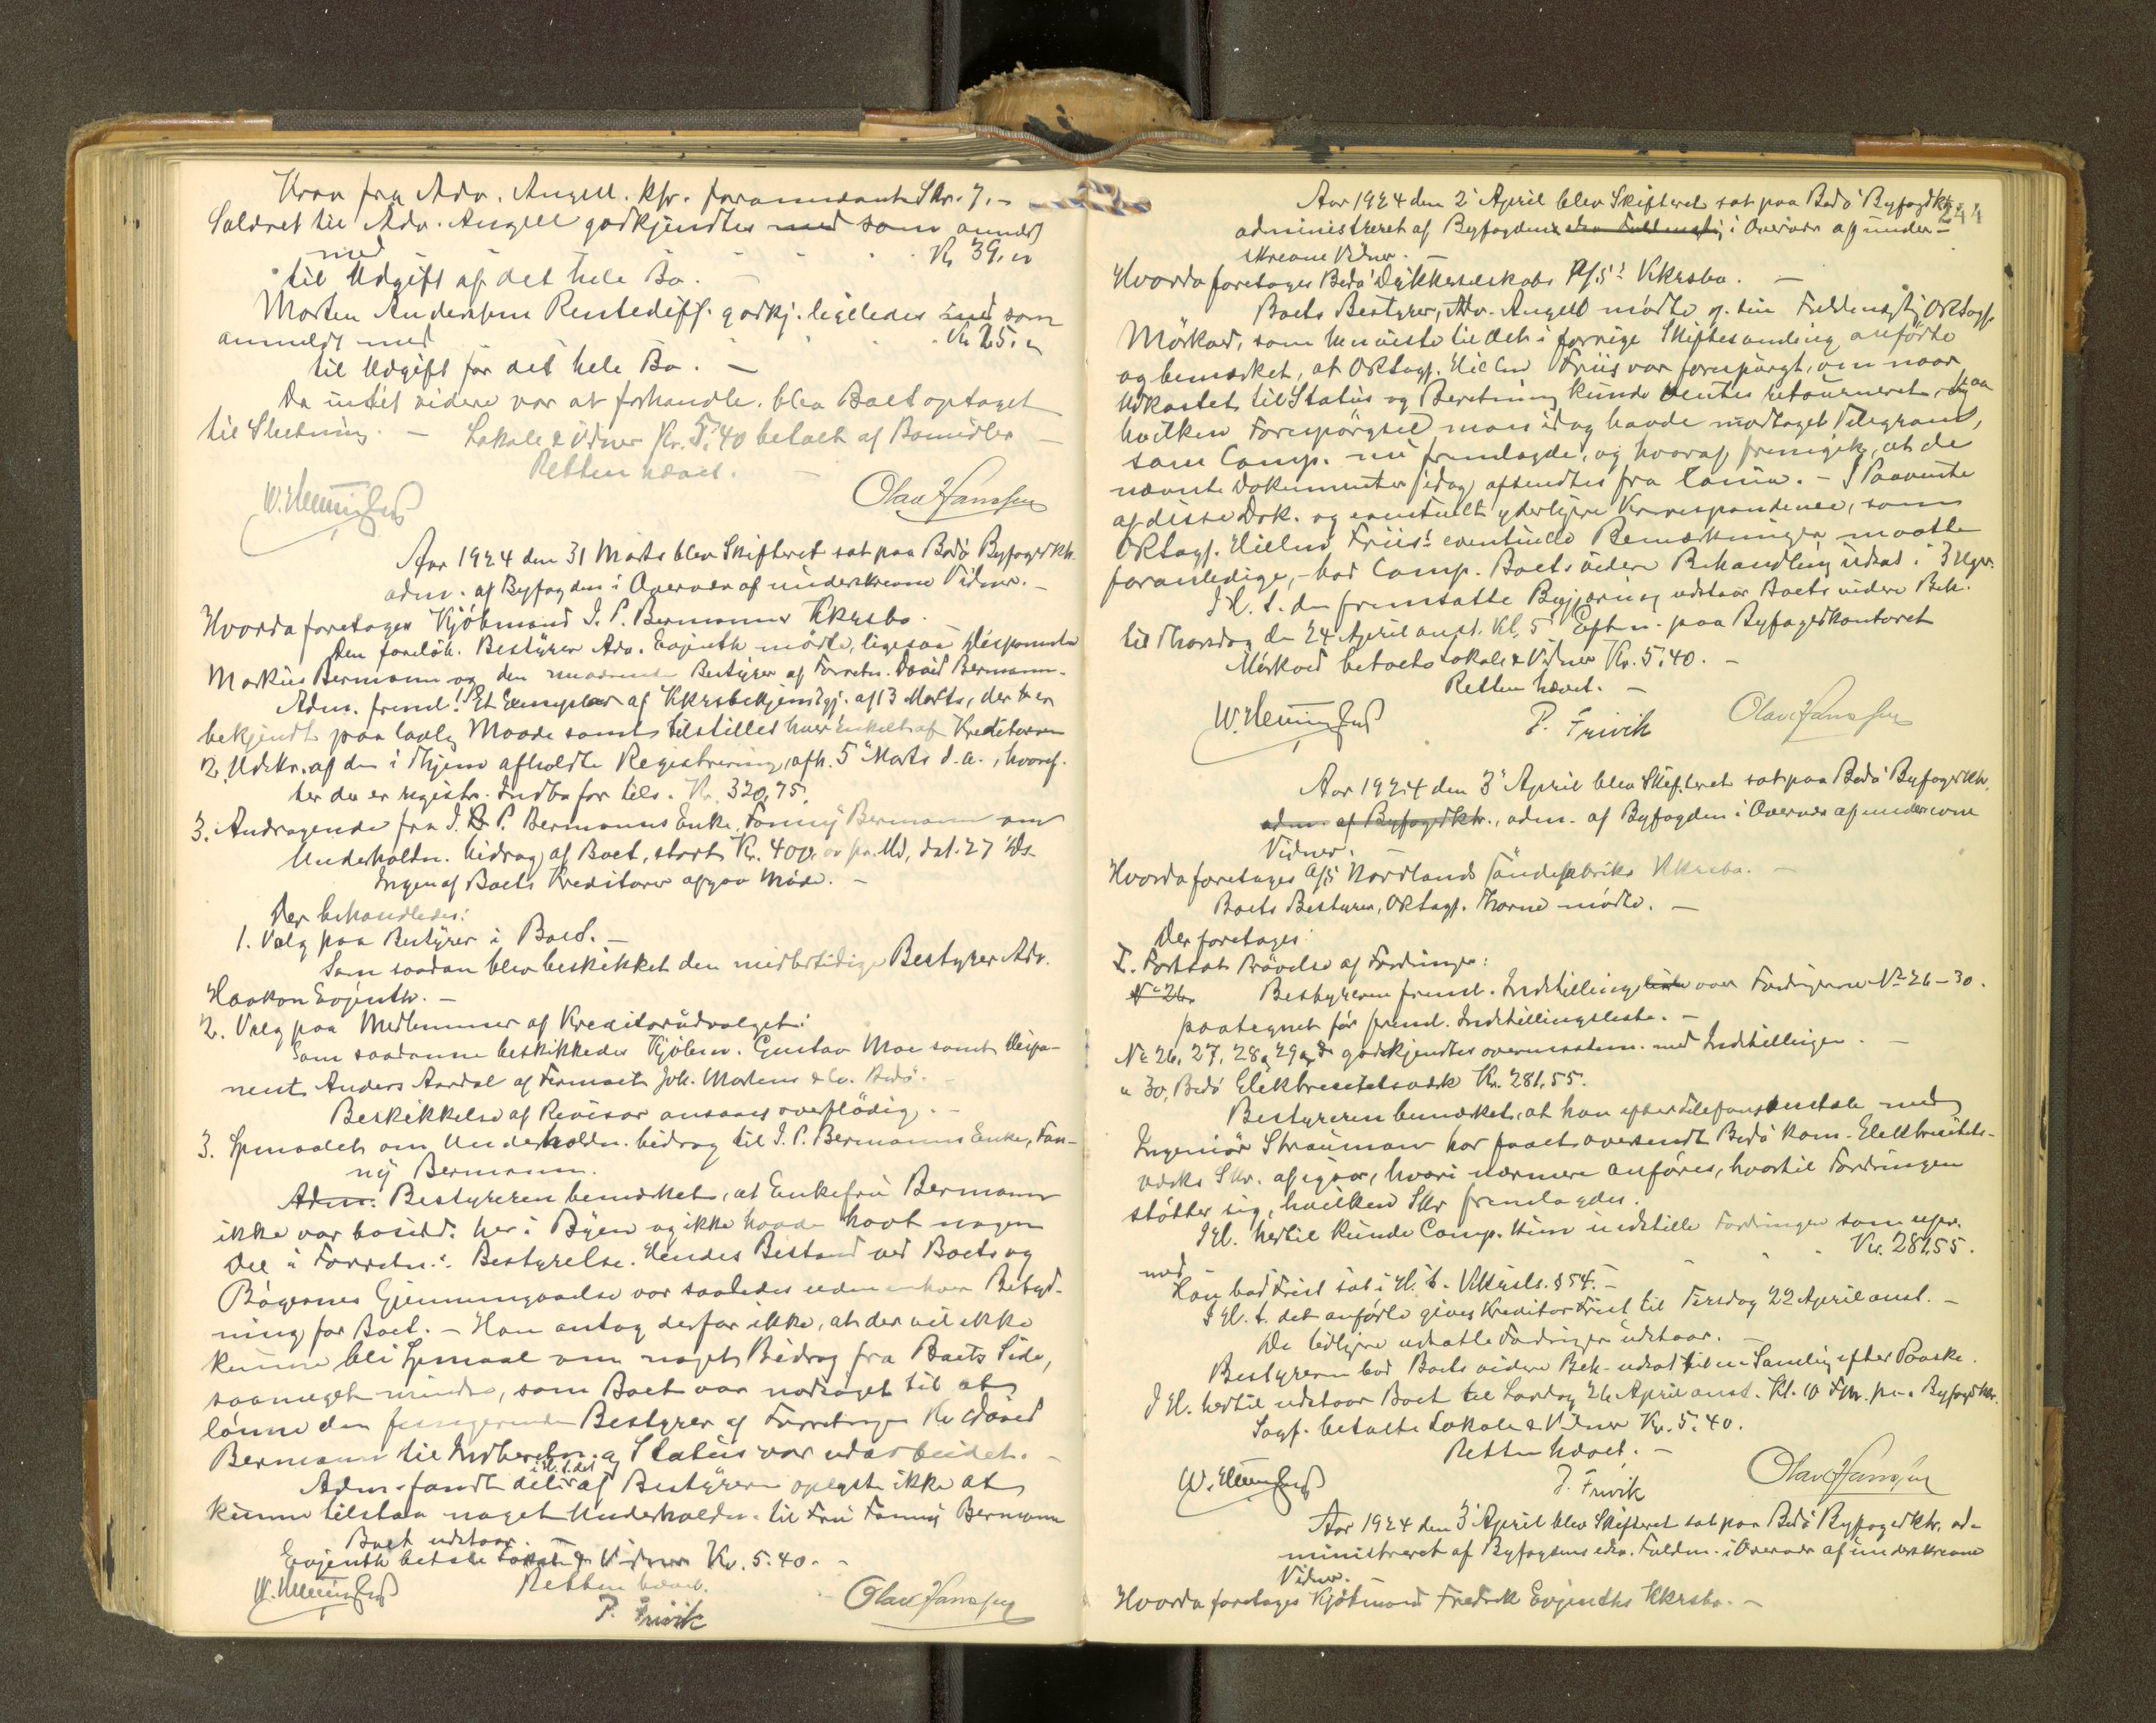 Krav fra Adv. Angell. kfr. foranstaaende Skr. 7. –
Saldret til Adv. Angell godkjendtes med som anmeldt
med Kr 39.00
til Udgift af det hele Bo.
Morten Anderssens Rentediff. godkj. ligeledes med som
anmeldt med Kr 25.00
til Udgift for det hele Bo. –
Da intet videre var at forhandle, blev Boet optaget
til Slutning. – Lokale & Vidner Kr. 5.40 betalt af Bomidler –
Retten hævet. –
Olav Hanssen
Aar 1924 den 31 Marts blev Skifteret sat paa Bodø Byfogdktr.
adm. af Byfogden i Overvær af underskrevne Vidner. –
Hvorda foretoges Kjøbmand I. P. Bermanns Kkrsbo.
Den foreløb. Bestyrer Adv. Evjenth mødte, ligesaa Disponente
Markus Bermann og den nuværende Bestyrer af Forretn. David Bermann.
Adm. freml. 1 Et Exemplar af Kkrsbekjendtgj. af 13 Marts, der er
bekjendt paa lovlig Maade samt tilstillet hver enkelt af Kreditorerne
2. Udskr. af den i Hjem afholdte Registrering, afh. 5 Marts d.a., hvoref-
ter der er registr. Indbo for tils. Kr. 320,75.
3. Andragende fra I. P. Bermanns Enke, Fanny Bermann om
Underholdn. bidrag af Boet, stort Kr. 400,00 pr. Md, dat. 27 ds.
Ingen af Boets Kreditorer afgav Møde. –
Der behandledes:
1. Valg paa Bestyrer i Boet. –
Som saadan blev beskikket den midlertidige Bestyrer Adv.
Haakon Evjenth. –
2. Valg paa Medlemmer af Kreditorudvalget:
Som saadanne beskikkedes Kjøbm. Gustav Moe samt Dispo-
nent Anders Aardal af Firmaet Joh. Martens & Co. Bodø. –
Beskikkelse af Revisor ansaaes overflødig. –
3. Spmaalet om Underholdn. bidrag til I. P. Bermanns Enke, Fan-
ny Bermann.
Adm. Bestyreren bemærket, at Enkefru Bermann
ikke var bosidd. her i Byen og ikke havde havt nogen
Del i Forretn.s Bestyrelse. Hendes Bistand ved Boets og
Bøgernes Gjennemgaaelse var saaledes uden enhver Betyd-
ning for Boet. – Han antog derfor ikke, at der vil ikke
kunne bli Spmaal om noget Bidrag fra Boets Side,
saameget mindre, som Boet var nødsaget til at
lønne den fungerende Bestyrer af Forretningen Hr David
Bermann til Indberetn. og Status var udarbeidet. –
Adm. fandt i H. t. det af Bestyreren oplyste ikke at
kunne tilstaa noget Underholdn. til Fru Fanny Bermann
Boet udstaar. –
Evjenth betalte Lokale & Vidner Kr. 5.40. –
Retten hævet.
P. Frivik
Olav Hanssen
244
Aar 1924 den 2 April blev Skifteret sat paa Bodø Byfogdktr.
administreret af Byfogden eller Fuldmægtig i Overvær af under-
skrevne Vidner. –
Hvorda foretoges Bodø Dykkerselskabs A/S's Kkrsbo. –
Boets Bestyrer, Adv. Angell mødte v. sin Fuldmægtig ORsagf.
Mørkved, som henviste til det i forrige Skiftesamling anførte
og bemærket, at ORsagf. Hielm Friis var forespurgt, om naar
Udkastet til Status og Beretning kunde ventes retourneret, paa
hvilken Forespørgsel man idag havde modtaget Telegram,
som Comp. nu fremlagde, og hvoraf fremgik, at de
nævnte Dokumenter idag afsendtes fra . – I Paavente
af disse Dok. og eventuelt yderligere Korrespondence, som
ORsagf. Hielm Friis' eventuelle Bemærkninger maatte
foranledige, – bad Comp. Boets videre Behandling udsat i 3 Uger.
I H. t. den fremsatte Begjæring udstaar Boets videre Beh.
til Thorsdag den 24 April anst. Kl. 5 Eftm. paa Byfogdkontoret
Mørkved betalte Lokale & Vidner Kr. 5.40. –
Retten hævet. –
P. Frivik
Olav Hanssen
Aar 1924 den 3 April blev Skifteret sat paa Bodø Byfogdktr.
adm. af Byfogdktr., adm. af Byfogden i Overvær af undersrevne
Vidner.
Hvorda foretoges A/S Nordlands Tøndefabriks Kkrsbo. –
Boets Bestyrer, ORsagf. Thorne mødte. –
Der foretoges:
I. Fortsat Prøvelse af Fordringer:
No 26. Bestyreren freml. Indstillingsliste over Fordringerne No 26–30.
paategnet før freml. Indstillingsliste. –
No 26, 27, 28 og 29 godkjendtes overensstem. med Indstillingen. –
" 30, Bodø Elektricitetsværk Kr. 281.55.
Bestyreren bemærket, at han efter Telefonsamtale med
Ingeniør Straumann har faaet oversendt Bodø kom. Elektricitets-
værks Skr. af igaar, hvori nærmere anføres, hvortil Fordringen
støtter sig, hvilken Skr fremlagdes.
I H. hertil kunde Comp. kun indstille Fordringen som upr.
med Kr. 281.55.
Han bad Frist sat i H. t. Kkrsls. § 54. –
I H. t. det anførte gives Kreditor Frist til Tirsdag 22 April anst. –
De tidligere udsatte Fordringer udstaar.
Bestyreren bad Boets videre Beh. udsat til en Samling efter Paaske.
I H. hertil udstaar Boet til Lørdag 26 April anst. Kl. 10 Fm. paa Byfogdktr.
Sagf. betalte Lokale & Vidner Kr. 5.40.
Retten hævet. –
P. Frivik
Olav Hanssen
Aar 1924 den 3 April blev Skifteret sat paa Bodø Byfogdktr. ad-
ministreret af Byfogdens edsv. Fuldm. i Overvær af underskrevne
Vidner.
Hvorda foretoges Kjøbmand Fredrik Evjenths Kkrsbo. –